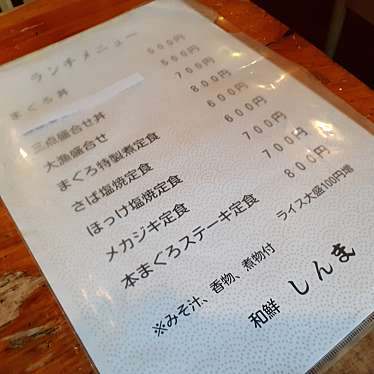 ランチメニュー
まぐろ丼 500円
500円
三点盛合せ丼 700円
大漁盛合せ 800円
まぐろ特製煮定食 600円
さば塩焼定食 600円
ほっけ塩焼定食 700円
メカジキ定食 700円
本まぐろステーキ定食 800円
ライス大盛100円増
※みそ汁、香物、煮物付
和鮮 しんま